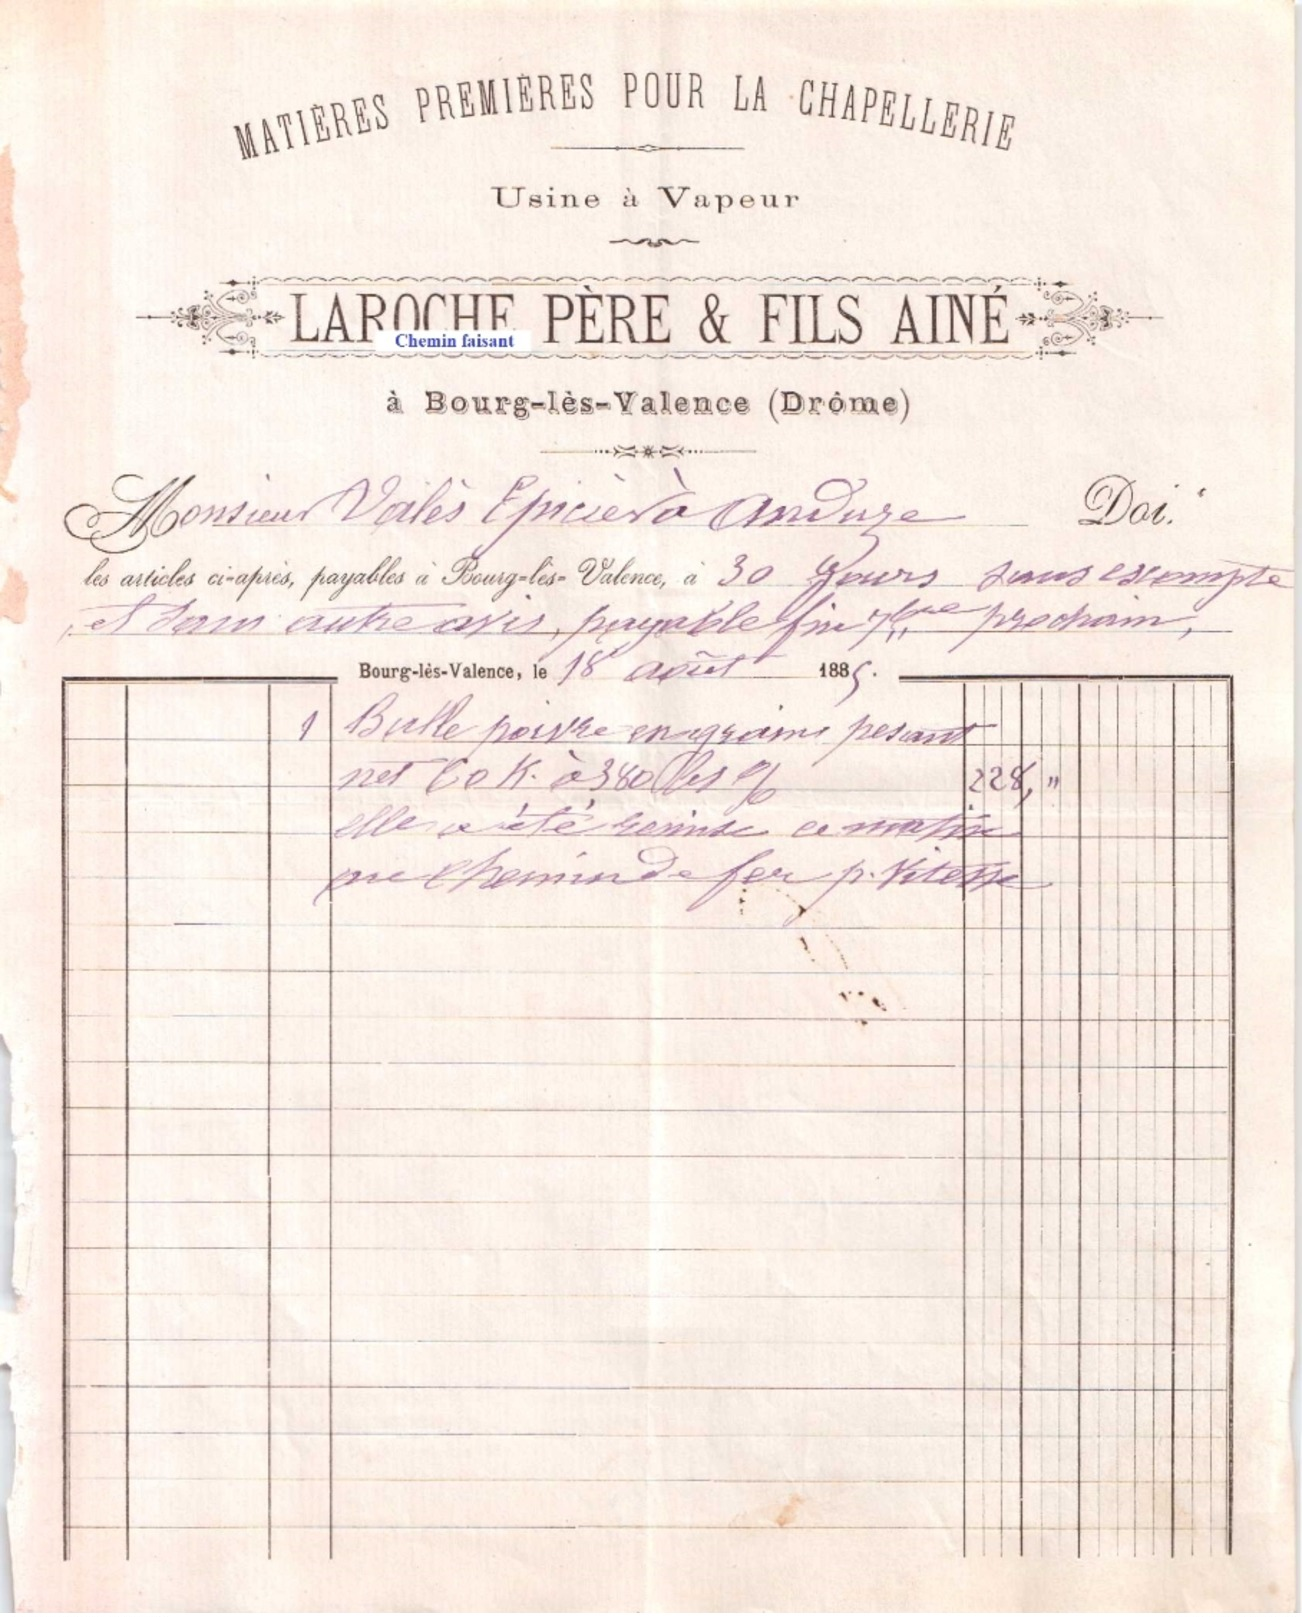 MATIÈRES PREMIÈRES POUR LA CHAPELLERIE
Usine à Vapeur
LAROCHE PÈRE & FILS AINÉ
Chemin faisant
à Bourg-lès-Valence (Drôme)
Monsieur Valès Epicier à Anduze Doit
les articles ci-après, payables à Bourg-lès-Valence, à 30 Jours sans escompte
et sans autre avis, payable fin 7bre prochain,
Bourg-lès-Valence, le 18 août 1885.
1 Balle poivre en grains pesant
net 60 K. à 380 les % 228, "
elle a été remise ce matin
au chemin de fer p. Vitesse